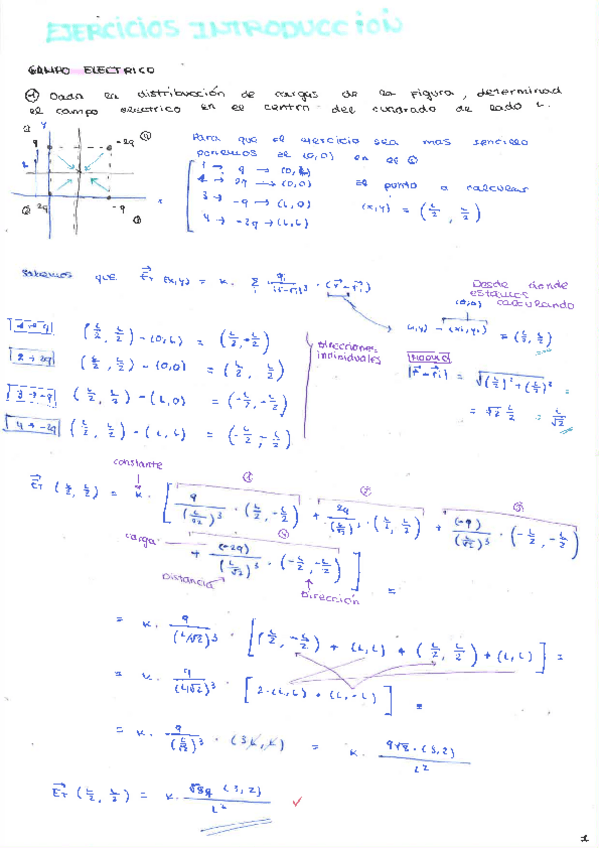 EJERCICIOS INTRODUCCIÓN
CAMPO ELECTRICO
① Dada la distribución de cargas de la figura, determinad
el campo electrico en el centro del cuadrado de lado L.
y
① q -2q ④
L
② 2q -q ③
x
Para que el ejercicio sea mas sencillo
ponemos el (0,0) en el ②
1 → q → (0, L)
2 → 2q → (0,0)
3 → -q → (L,0)
4 → -2q → (L,L)
El punto a calcular
(x,y) = (L/2, L/2)
Sabemos que E⃗T (x,y) = K · Σi qi/|r⃗-r⃗i|³ · (r⃗-r⃗i)
Desde donde
estamos
calculando
(0,0)
(x,y) - (xi,yi) = (L/2, L/2)
1 → q (L/2, L/2) - (0,L) = (L/2, -L/2)
2 → 2q (L/2, L/2) - (0,0) = (L/2, L/2)
3 → -q (L/2, L/2) - (L,0) = (-L/2, -L/2)
4 → -2q (L/2, L/2) - (L,L) = (-L/2, -L/2)
Direcciones
individuales
Modulo
|r⃗-r⃗i| = √((L/2)²+(L/2)²) =
= √2 L/2 = L/√2
constante
E⃗T (L/2, L/2) = K · [ q/(L/√2)³ · (L/2, -L/2) + 2q/(L/√2)³ · (L/2, L/2) + (-q)/(L/√2)³ · (-L/2, -L/2)
① ② ③
carga
+ (-2q)/(L/√2)³ · (-L/2, -L/2) ] =
④
Distancia
Dirección
= K · q/(L/√2)³ · [ (L/2, -L/2) + (L,L) + (L/2, L/2) + (L,L) ] =
= K · q/(L/√2)³ · [ 2·(L,L) + (L,-L) ] =
= K · q/(L/√2)³ · (3L, L) = K · q√8·(3,2)/L²
E⃗T (L/2, L/2) = K · √8q (3,2)/L² ✓